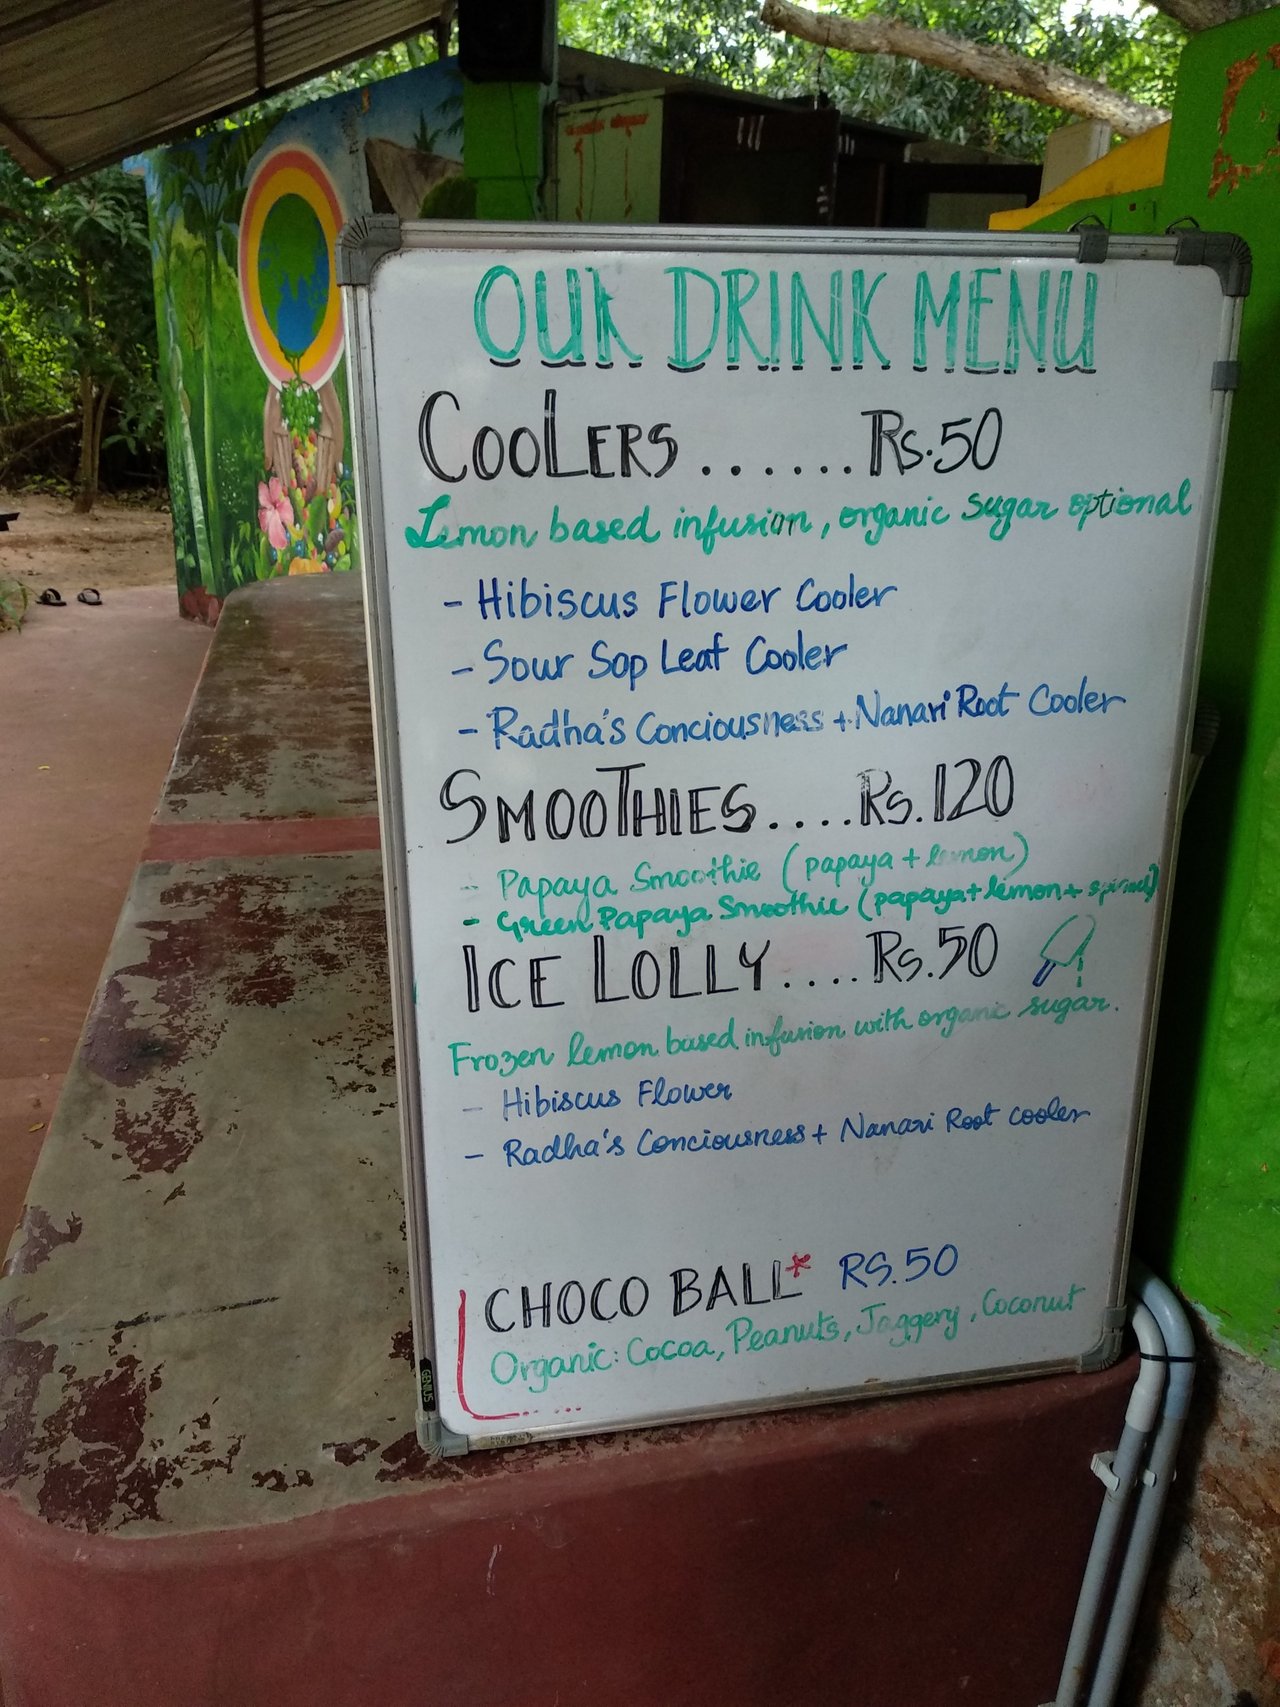 OUR DRINK MENU
COOLERS ...... Rs.50
Lemon based infusion, organic sugar optional
- Hibiscus Flower Cooler
- Sour Sop Leaf Cooler
- Radha's Conciousness + Nanari Root Cooler
SMOOTHIES .... Rs.120
- Papaya Smoothie (papaya + lemon)
- Green Papaya Smoothie (papaya + lemon +
ICE LOLLY .... Rs.50
Frozen lemon based infusion with organic sugar.
- Hibiscus Flower
- Radha's Conciousness + Nanari Root cooler
CHOCO BALL* RS.50
Organic: Cocoa, Peanuts, Jaggery, Coconut
GENIUS